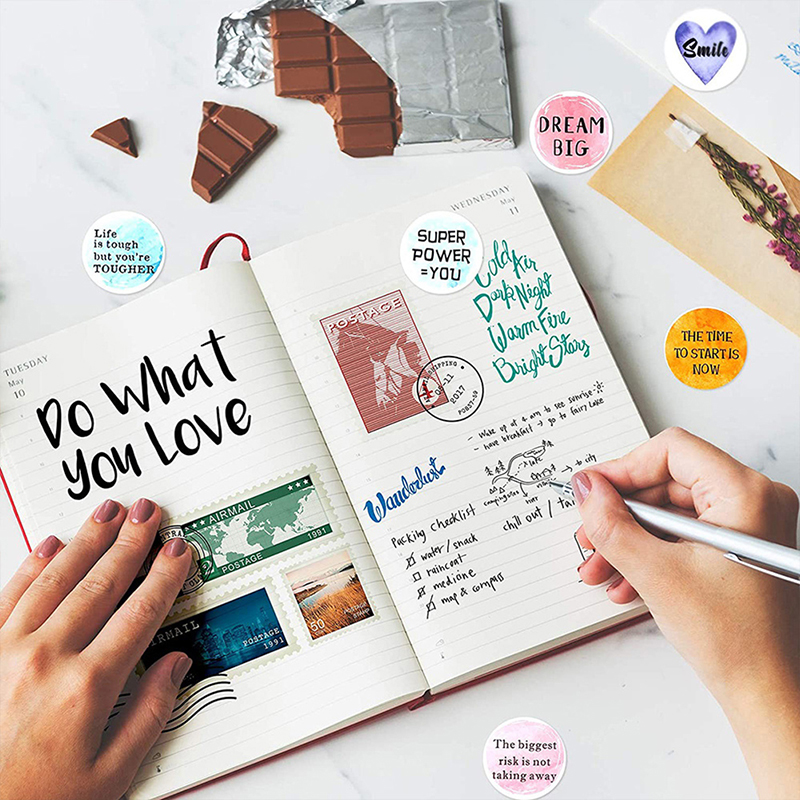 Smile
DREAM
BIG
Life
is tough
but you're
TOUGHER
WEDNESDAY
May
11
SUPER
POWER
=YOU
Cold Air
Dark Night
Warm Fire
Bright Stars
POSTAGE
SHIPPING
05-11
2017
THE TIME
TO START IS
NOW
TUESDAY
May
10
Do What
You Love
- Wake up at 4 am to see sunrise
- have breakfast → go to fairy Lake
Lake
→ to city
camping site
river
Wanderlust
Packing Checklist
water / snack
raincoat
medicine
map & compass
chill out /
AIRMAIL
POSTAGE
1991
AIRMAIL
POSTAGE
1991
50
POSTAGE
STAMP
The biggest
risk is not
taking away